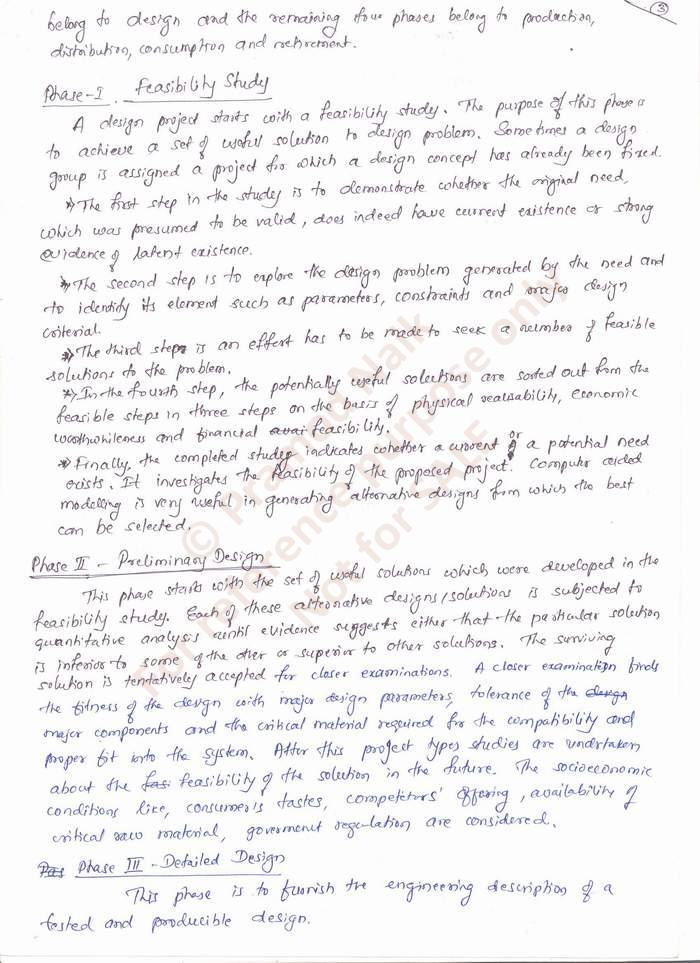 3
belong to design and the remaining four phases belong to production,
distribution, consumption and retirement.
Phase-I. Feasibility Study
A design project starts with a feasibility study. The purpose of this phase is
to achieve a set of useful solution to design problem. Sometimes a design
group is assigned a project for which a design concept has already been fixed.
*) The first step in the study is to demonstrate whether the original need,
which was presumed to be valid, does indeed have current existence or strong
evidence of latent existence.
*) The second step is to explore the design problem generated by the need and
to identify its element such as parameters, constraints and major design
criterial.
*) The third step is an effort has to be made to seek a number of feasible
solutions to the problem.
*) In the fourth step, the potentially useful solutions are sorted out from the
feasible steps in three steps on the basis of physical realisability, economic
worthwhileness and financial avai feasibility.
*) Finally, the completed study indicates whether a current or a potential need
exists. It investigates the feasibility of the proposed project. Computer aided
modelling is very useful in generating alternative designs from which the best
can be selected.
Phase II - Preliminary Design
This phase starts with the set of useful solutions which were developed in the
feasibility study. Each of these alternative designs/solutions is subjected to
quantitative analysis until evidence suggests either that the particular solution
is inferior to some of the other or superior to other solutions. The surviving
solution is tentatively accepted for closer examinations. A closer examination finds
the fitness of the design with major design parameters, tolerance of the design
major components and the critical material required for the compatibility and
proper fit into the system. After this project types studies are undertaken
about the fasi feasibility of the solution in the future. The socioeconomic
conditions like, consumer's tastes, competetors' offering, availability of
critical raw material, goverment regulation are considered.
Pas Phase III - Detailed Design
This phase is to furnish the engineering description of a
tested and producible design.
© Pramod Naik
For reference purpose only
Not for SALE